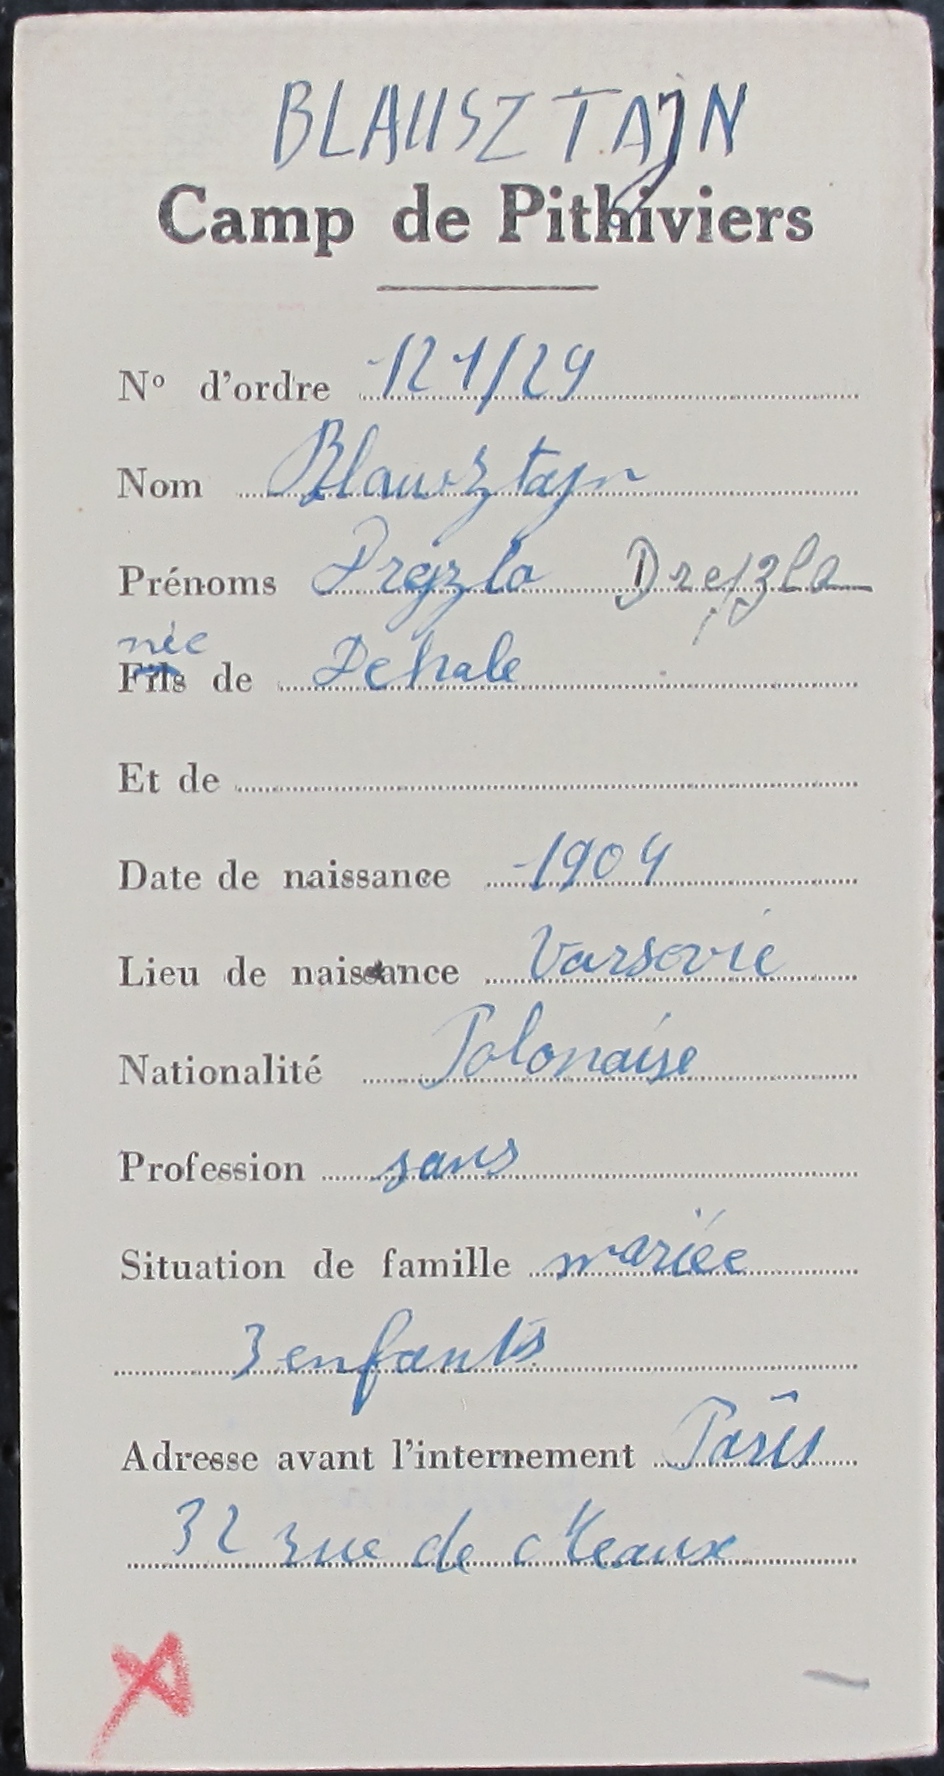 BLAUSZTAJN
Camp de Pithiviers
N° d'ordre 121/29
Nom Blausztajn
Prénoms Drejzla Drejzla
née
Fils de Dehale
Et de
Date de naissance 1904
Lieu de naissance Varsovie
Nationalité Polonaise
Profession sans
Situation de famille mariée
3 enfants
Adresse avant l'internement Paris
32 rue de Meaux